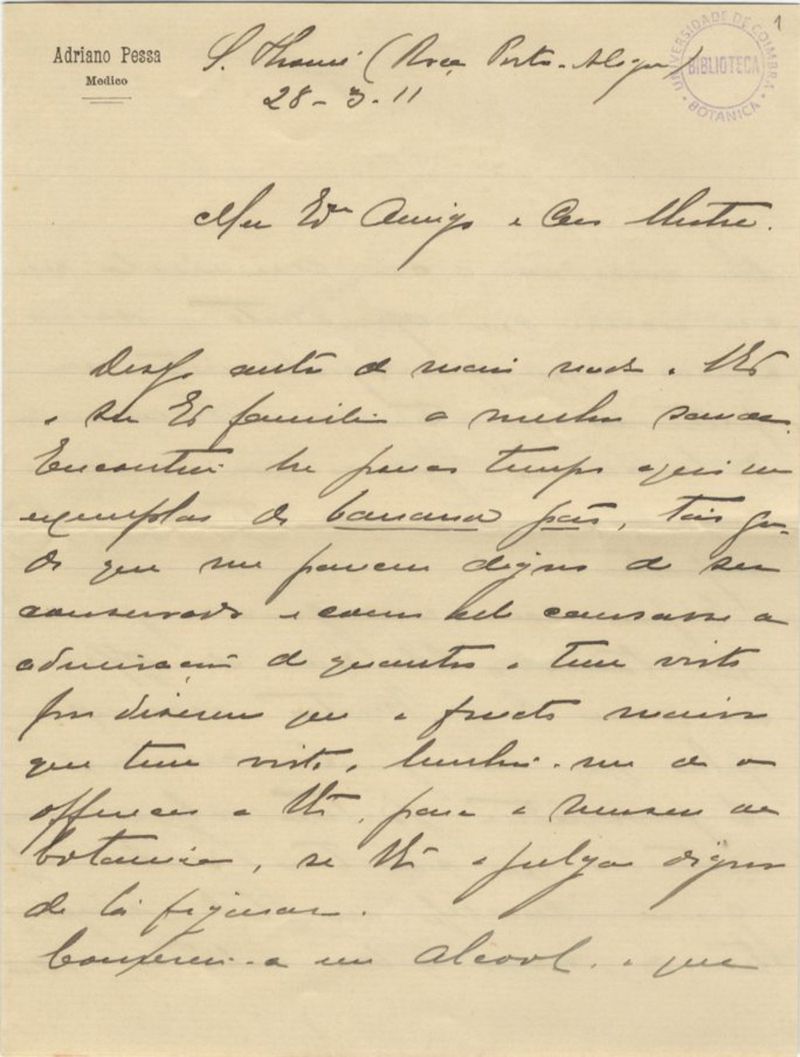 1
UNIVERSIDADE DE COIMBRA
BIBLIOTECA
BOTANICA
Adriano Pessa
Medico
S. Thomé (Roça Porto-Alegre)
28-3-11
Meu Exmo Amigo e Caro Mestre.
Desejo antes de mais nada a VEx
e sua Ex familia a melhor saude.
Encontrei ha pouco tempo aqui um
exemplar de banana pão, tão gran-
de que me parecem digno de ser
conservado e como ele causasse a
admiração de quantos o teem visto
por dizerem ser o fructo maior
que teem visto, lembrei-me de o
offerecer a VEx para o museu de
botanica, se VEx o julgar digno
de lá figurar.
Conservei-o em alcool, e que